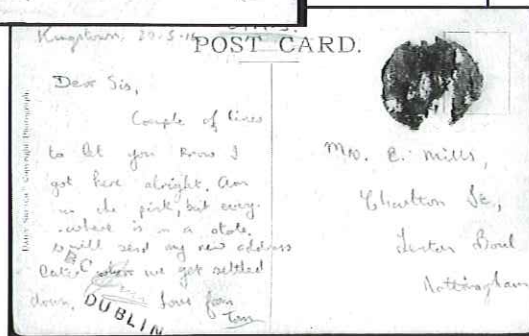 Kingstown, 20-5-16
POST CARD.
Dear Sis,
Couple of lines
to let you know I
got here alright. Am
in the pink, but every-
where is in a state.
will send my new address
later when we get settled
down. Love from
Tom
DUBLIN
Mrs. E. Mills,
Charlton St,
Lenton Boul
Nottingham